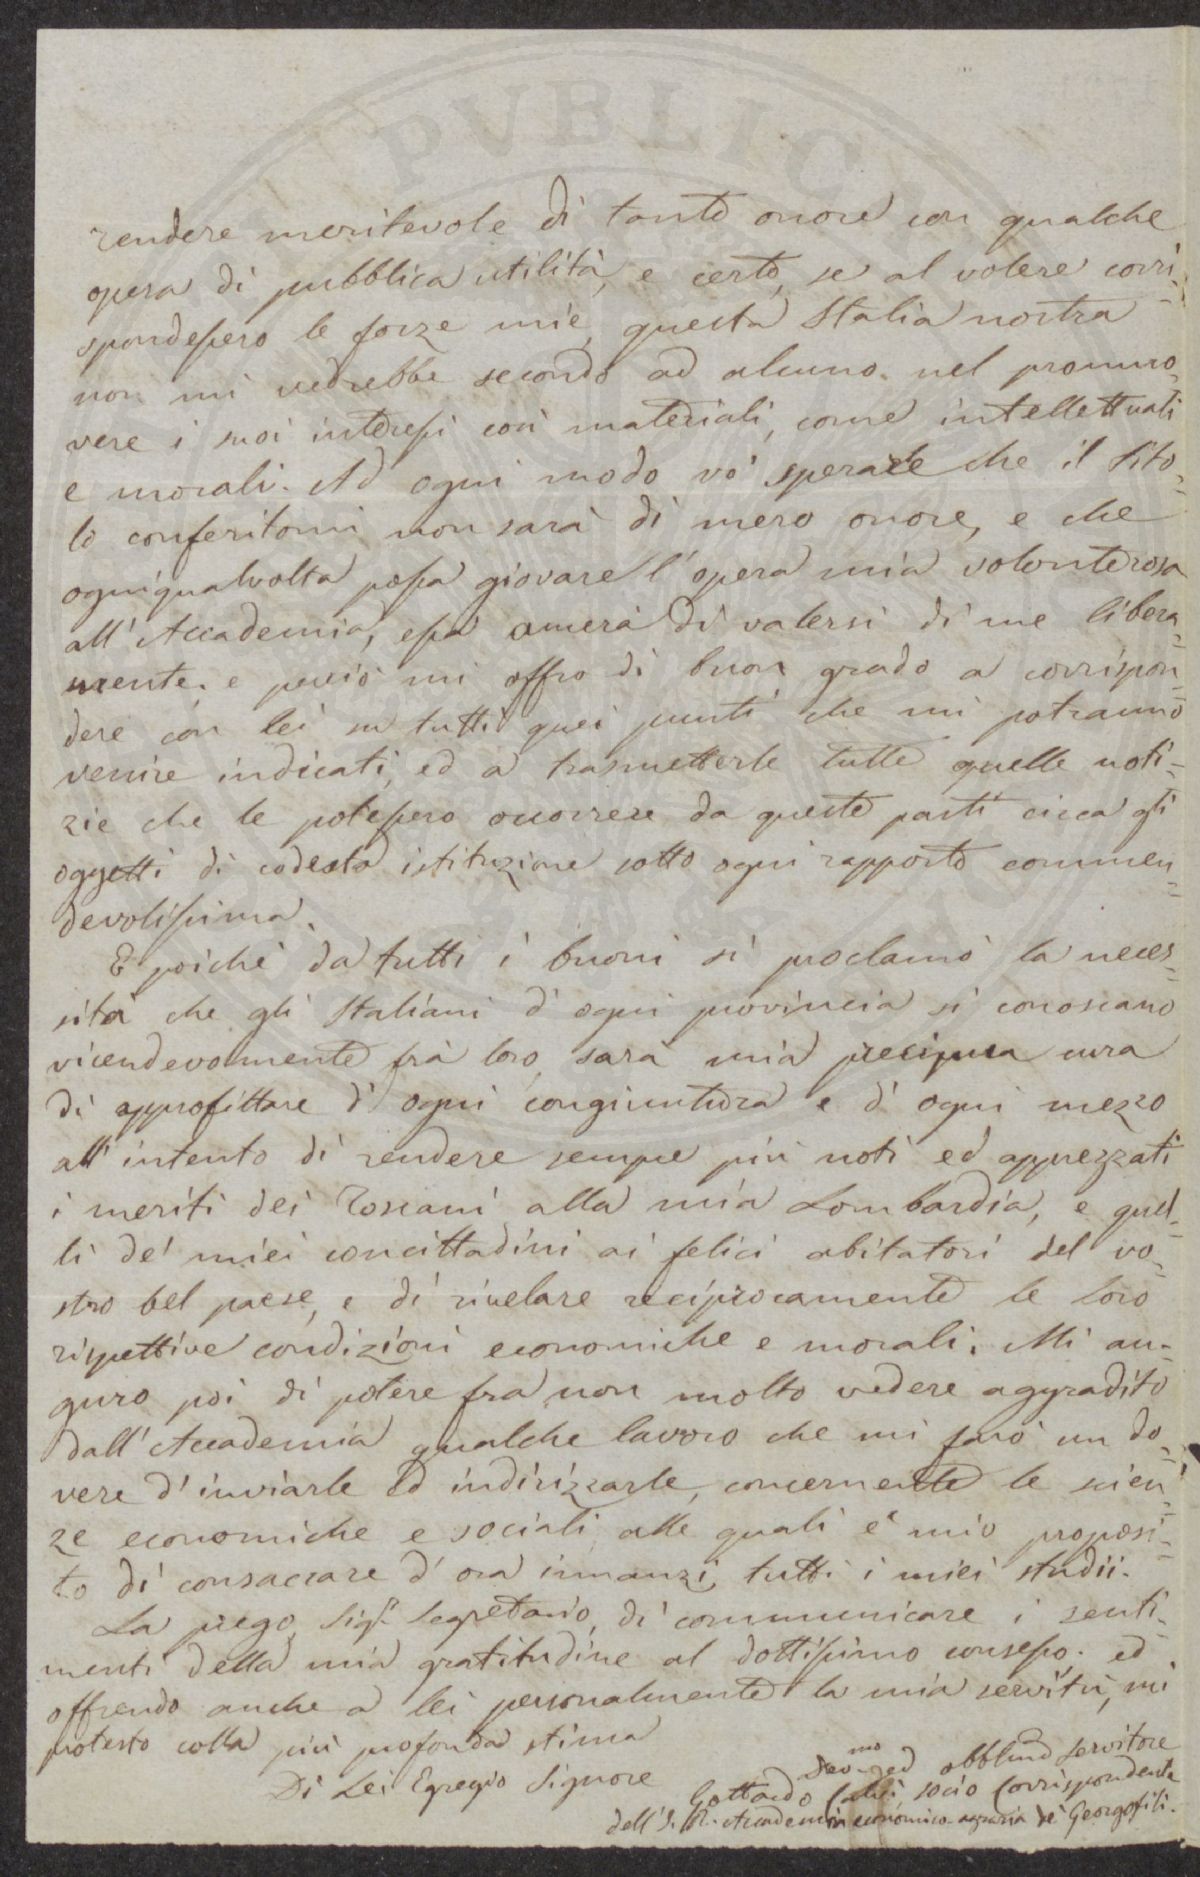 PVBLIC
rendere meritevole di tanto onore con qualche
opera di pubblica utilità, e certo, se al volere corri=
spondessero le forze mie, questa Italia nostra
non mi vedrebbe secondo ad alcuno nel promuo=
vere i suoi interessi così materiali, come intellettuali
e morali. Ad ogni modo vo' sperare che il tito=
lo conferitomi non sarà di mero onore, e che
ogniqualvolta possa giovare l'opera mia volonterosa
all'Accademia, essa amerà di valersi di me libera=
mente. e perciò mi offro di buon grado a corrispon=
dere con lei su tutti quei punti che mi potranno
venire indicati, ed a trasmetterle tutte quelle noti=
zie che le potessero occorrere da queste parti circa gli
oggetti di codesta istituzione sotto ogni rapporto commen=
devolissima.
E poichè da tutti i buoni si proclamò la neces=
sità che gli Italiani d'ogni provincia si conoscano
vicendevolmente frà loro, sarà mia precipua cura
di approfittare d'ogni congiuntura e d'ogni mezzo
all'intento di rendere sempre più noti ed apprezzati
i meriti dei Toscani alla mia Lombardia, e quel=
li de' miei concittadini ai felici abitatori del vo=
stro bel paese, e di rivelare reciprocamente le loro
rispettive condizioni economiche e morali. Mi au=
guro poi di potere fra non molto vedere aggradito
dall'Accademia qualche lavoro che mi farò un do=
vere d'inviarle ed indirizzarle, concernente le scien=
ze economiche e sociali, alle quali è mio proposi=
to di consacrare d'ora innanzi tutti i miei studii.
La prego, Sigr. Segretario, di communicare i senti=
menti della mia gratitudine al dottissimo consesso. ed
offrendo anche a lei personalmente la mia servitù, mi
protesto colla più profonda stima
Di Lei Egregio Signore
Devmo ed obblmo servitore
Gottardo socio corrispondente
dell'I. R. Accademia economico-agraria de' Georgofili.